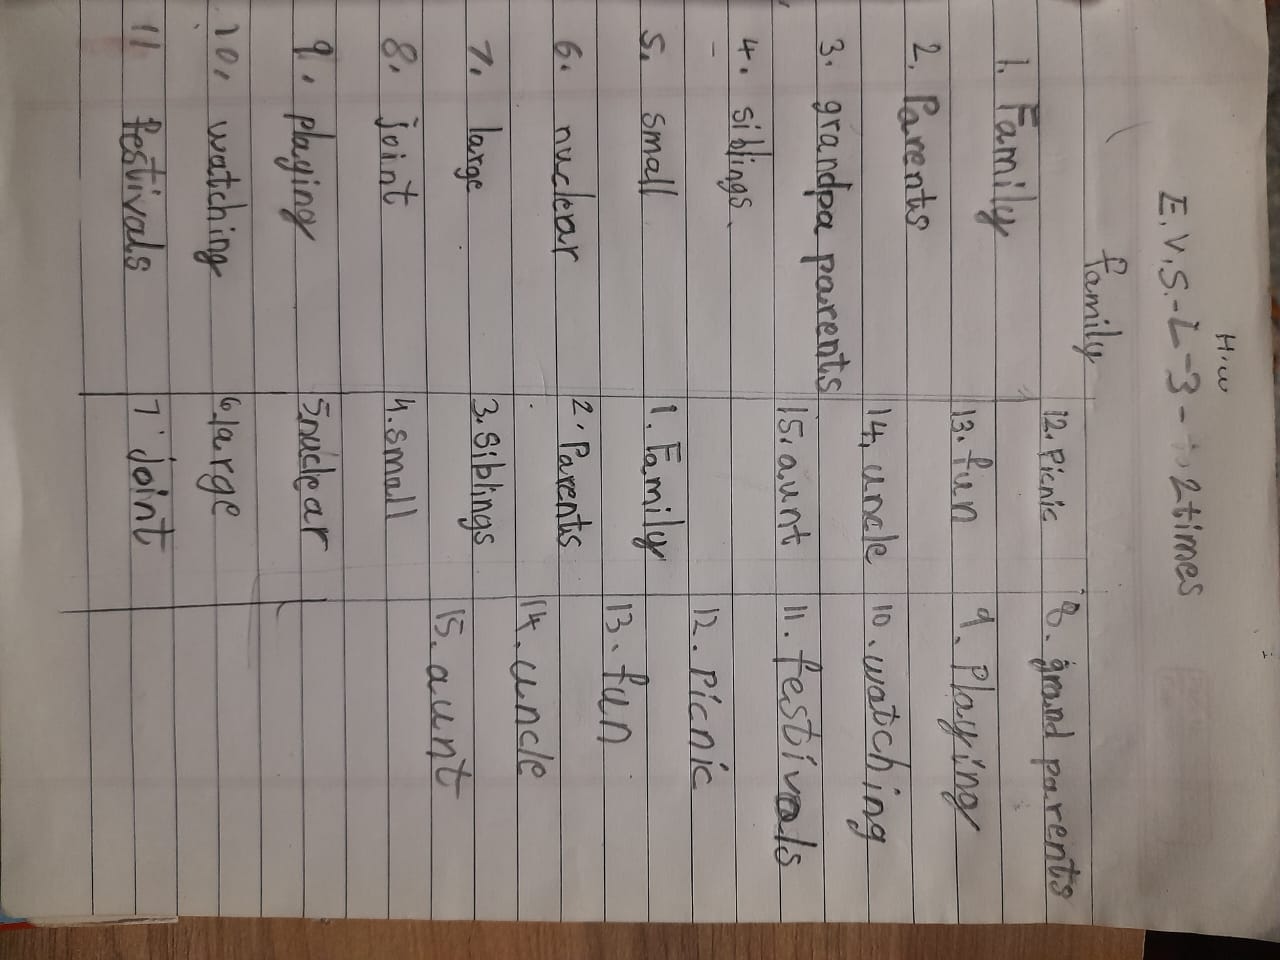 H.W
E.V.S.-L-3-2times
family
1. Family
2. Parents
3. grandpa parents
4. siblings.
5. small
6. nuclear
7. large
8. joint
9. playing
10. watching
11 festivals
12. Picnic
13. fun
14. uncle
15. aunt
1. Family
2. Parents
3. Siblings
4. small
5. nuclear
6. large
7. joint
8. grand parents
9. Playing
10. watching
11. festivals
12. Picnic
13. fun
14. uncle
15. aunt